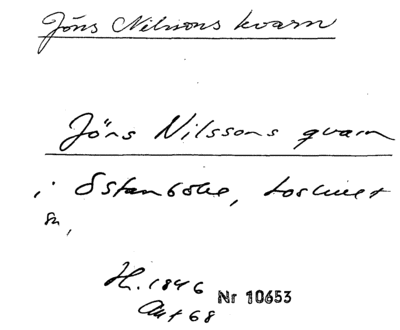 Jöns Nilssons kvarn
Jöns Nilssons qvarn
i Östanböke, Loshult
sn,
H. 1846 Nr 10653
Akt 68